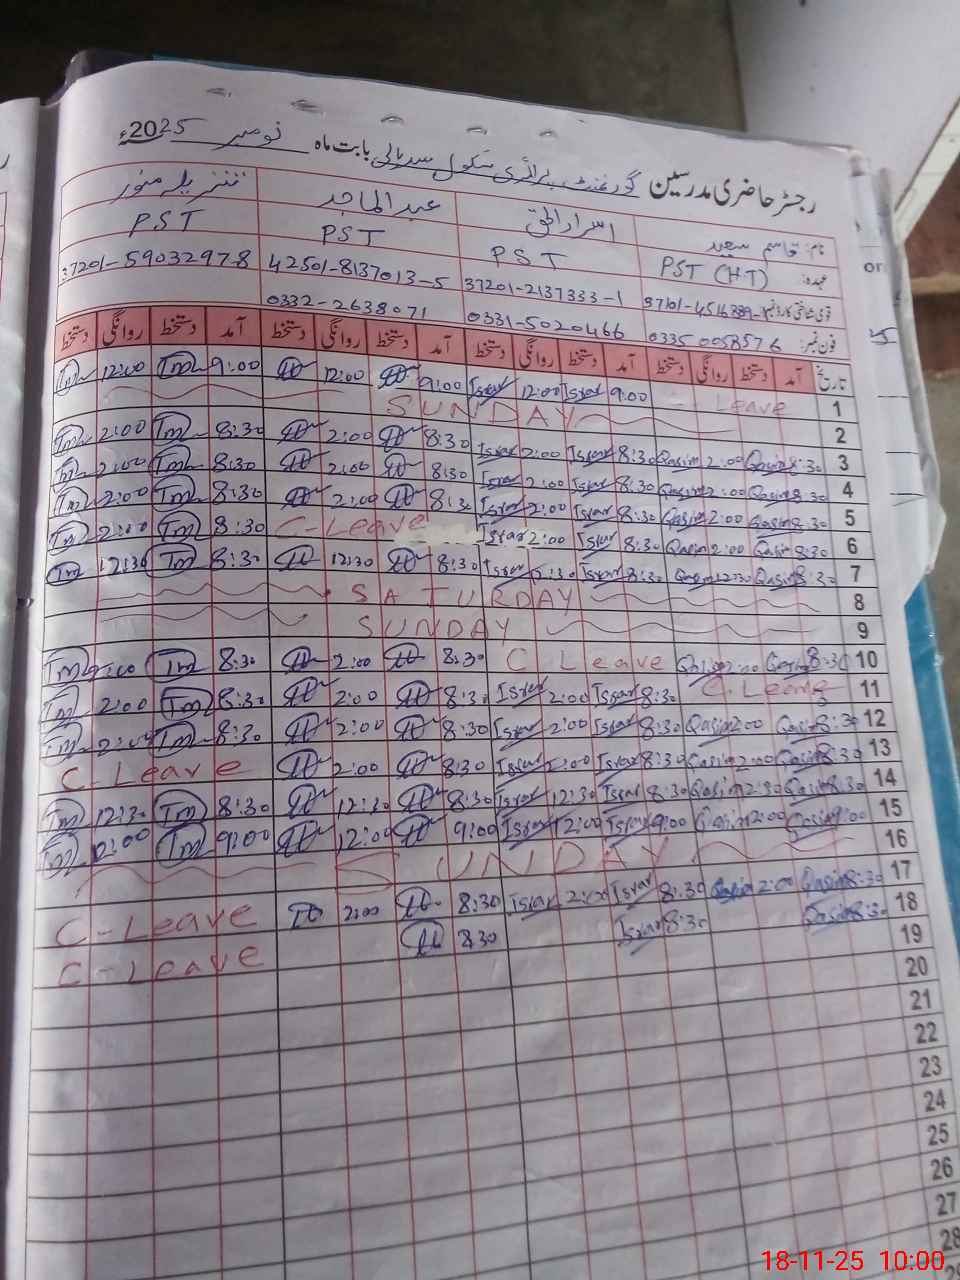 رجسٹر حاضری مدرسین گورنمنٹ پرائمری سکول سریالی بابت ماہ نومبر 2025ء
نام: قاسم سعید اسرار الحق عبدالماجد تنزیلہ منور
عہدہ: PST (HT) PST PST PST
قومی شناختی کارڈ نمبر 37201-2137333-1 42501-8137013-5 37201-5903297-8
فون نمبر: 0331-5020466 0332-2638071
تاریخ آمد دستخط روانگی دستخط آمد دستخط روانگی دستخط آمد دستخط روانگی دستخط آمد دستخط روانگی دستخط
1 Leave 9:00 Israr 12:00 Israr 9:00 12:00 9:00 Tm 12:00
2 SUNDAY
3 8:30 Qasim 2:00 Qasim 8:30 Israr 2:00 Israr 8:30 2:00 8:30 Tm 2:00 Tm
4 8:30 Qasim 2:00 Qasim 8:30 Israr 2:00 Israr 8:30 2:00 8:30 Tm 2:00
5 8:30 Qasim 2:00 Qasim 8:30 Israr 2:00 Israr 8:30 2:00 8:30 Tm 2:00 Tm
6 8:30 Qasim 2:00 Qasim 8:30 Israr 2:00 Israr C-Leave 8:30 Tm 2:00 Tm
7 8:30 Qasim 12:30 Qasim 8:30 Israr 12:30 Israr 8:30 12:30 8:30 Tm 12:30 Tm
8 SATURDAY
9 SUNDAY
10 8:30 Qasim 2:00 Qasim C Leave 8:30 2:00 8:30 Tm Tm
11 C-Leave 8:30 Israr 2:00 Israr 8:30 2:00 8:30 Tm 2:00 Tm
12 8:30 Qasim 2:00 Qasim 8:30 Israr 2:00 Israr 8:30 2:00 8:30 Tm 2:00 Tm
13 8:30 Qasim 2:00 Qasim 8:30 Israr 2:00 Israr 8:30 2:00 C-Leave
14 8:30 Qasim 12:30 Qasim 8:30 Israr 12:30 Israr 8:30 12:30 8:30 Tm 12:30 Tm
15 9:00 Qasim 12:00 Qasim 9:00 Israr 12:00 Israr 9:00 12:00 9:00 Tm 12:00 Tm
16 SUNDAY
17 8:30 Qasim 2:00 Qasim 8:30 Israr 2:00 Israr 8:30 2:00 C-Leave
18 8:30 Qasim 8:30 Israr 8:30 C-Leave
19
20
21
22
23
24
25
26
27
28
18-11-25 10:00